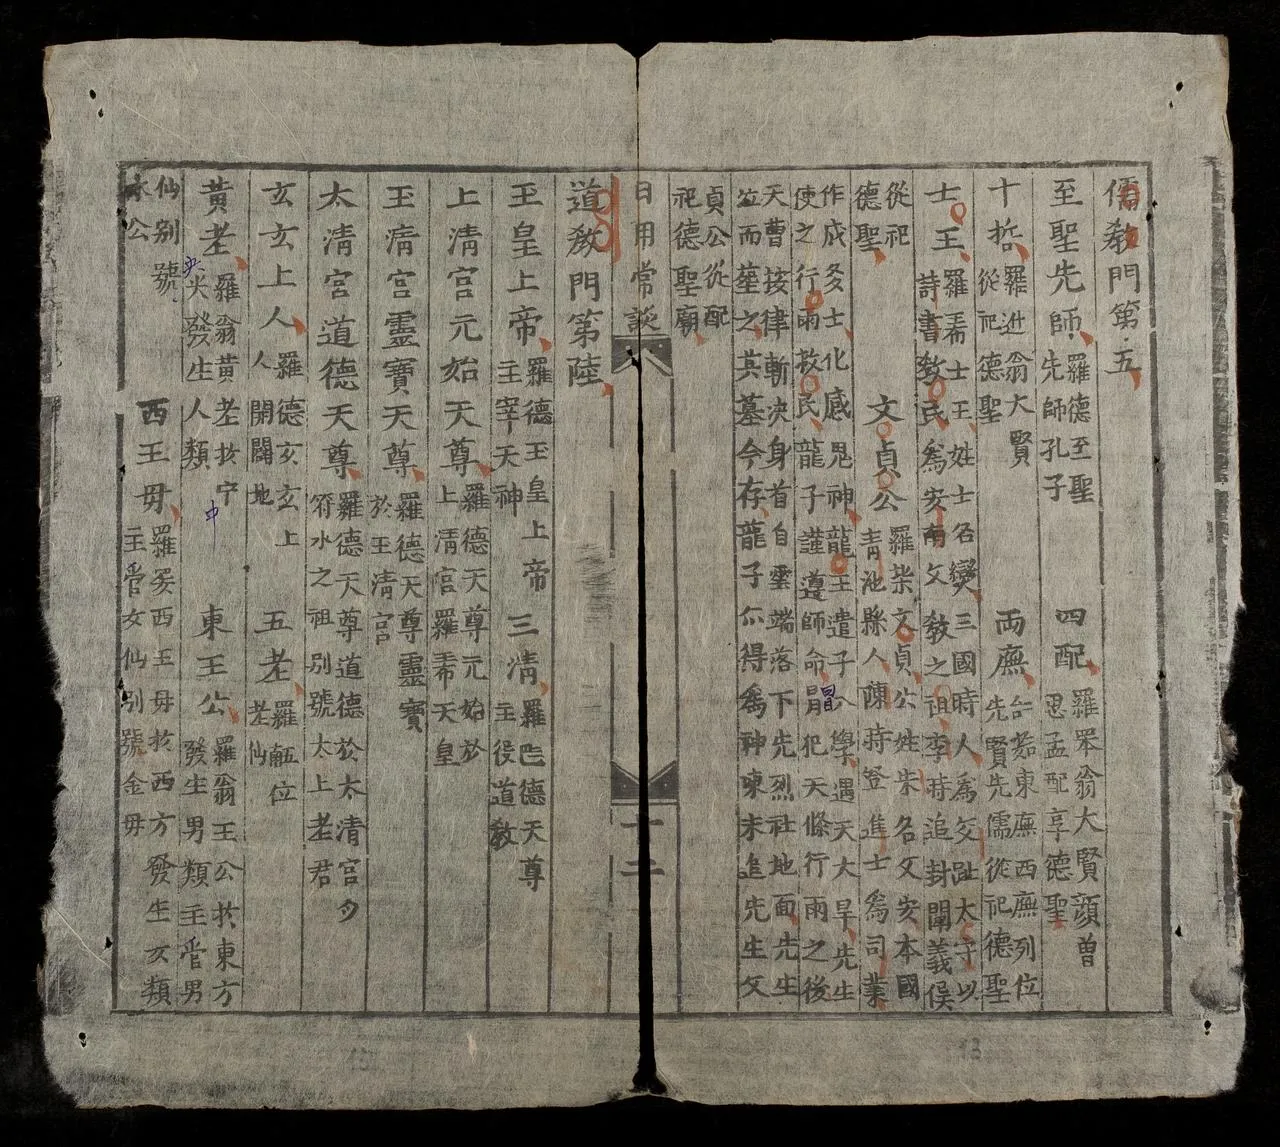 儒教門第五
至聖先師 羅德至聖先師孔子 四配 羅眾翁大賢顔曾思孟配享德聖
十哲 羅進翁大賢從祀德聖 兩廡 台茹東廡西廡列位先賢先儒從祀德聖
士王 羅希士王姓士名燮三國時人爲交趾太守以詩書教民爲安南文教之祖李時追封闡義侯
從祀德聖 文貞公 羅柴文貞公姓朱名文安本國青池縣人陳時登進士爲司業
作成多士化感鬼神龍王遣子入學遇天大旱先生使之行雨救民龍子謹遵師命冒犯天條行雨之後
天曹按律斬决身首自雲端落下先烈社地面先生並而塟之其墓今存龍子亦得爲神陳末追先生文
貞公從配祀德聖廟
日用常談 十二
道教門第陸
玉皇上帝 羅德玉皇上帝主宰天神 三清 羅𠀧德天尊主役道教
上清宮元始天尊 羅德天尊元始於上清宮羅希天皇
玉清宮靈寶天尊 羅德天尊靈寶於玉清宮
太清宮道德天尊 羅德天尊道德於太清宮夕符水之祖別號太上老君
玄玄上人 羅德玄玄上人開闢地 五老 羅𠄼位老仙
黃老 羅翁黃老於中央發生人類 東王公 羅翁王公於東方發生男類主管男
仙别號木公 西王母 羅妥西王母於西方發生女類主管女仙别號金母